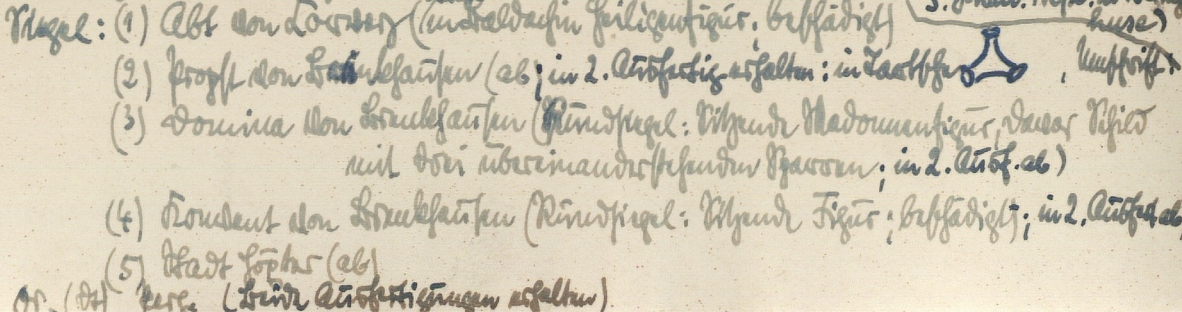 Siegel: (1) Abt von Corvey (in Baldachin Heiligenfigur, beschädigt)
huse)
(2) Propst von Brenkhausen (ab; in 2. Ausfertig. erhalten: in Tartsche , Umschrift:
(3) Domina von Brenkhausen (Rundsiegel: Sitzende Madonnenfigur, davor Schild
mit drei übereinanderstehenden Sparren; in 2. Ausf. ab)
(4) Konvent von Brenkhausen (Rundsiegel: Sitzende Figur; beschädigt); in 2. Ausfert. ab
(5) Stadt Höxter (ab)
Or. (dt) Perg. (beide Ausfertigungen erhalten)